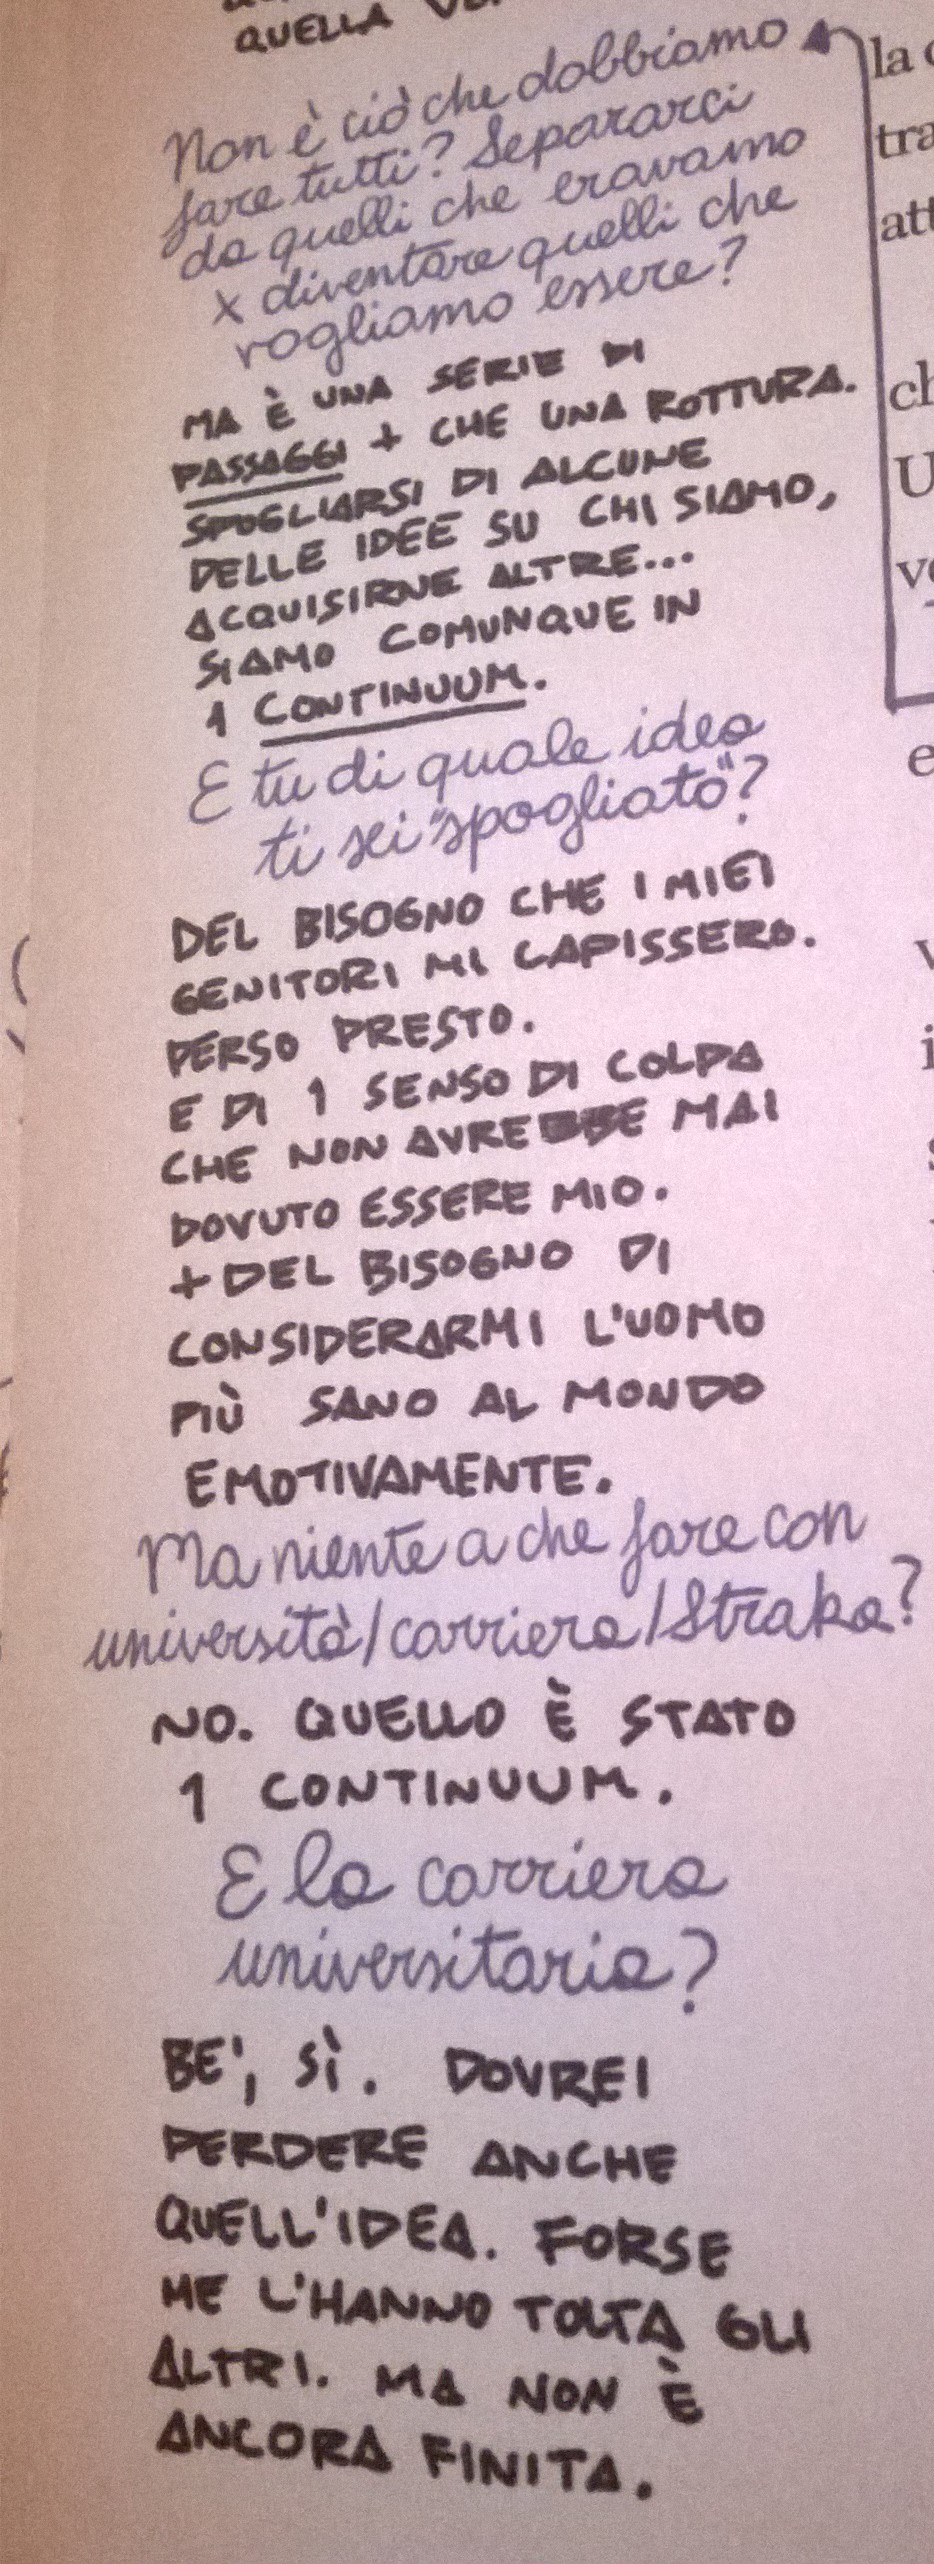 QUELLA
Non è ciò che dobbiamo
fare tutti? Separarci
da quelli che eravamo
x diventare quelli che
vogliamo essere?
MA È UNA SERIE DI
PASSAGGI + CHE UNA ROTTURA.
SPOGLIARSI DI ALCUNE
DELLE IDEE SU CHI SIAMO,
ACQUISIRNE ALTRE...
SIAMO COMUNQUE IN
1 CONTINUUM.
E tu di quale idea
ti sei "spogliato"?
DEL BISOGNO CHE I MIEI
GENITORI MI CAPISSERO.
PERSO PRESTO.
E DI 1 SENSO DI COLPA
CHE NON AVREBBE MAI
DOVUTO ESSERE MIO.
+ DEL BISOGNO DI
CONSIDERARMI L'UOMO
PIÙ SANO AL MONDO
EMOTIVAMENTE.
Ma niente a che fare con
università/carriera/Straka?
NO. QUELLO È STATO
1 CONTINUUM.
E la carriera
universitaria?
BE', SÌ. DOVREI
PERDERE ANCHE
QUELL'IDEA. FORSE
ME L'HANNO TOLTA GLI
ALTRI. MA NON È
ANCORA FINITA.
la